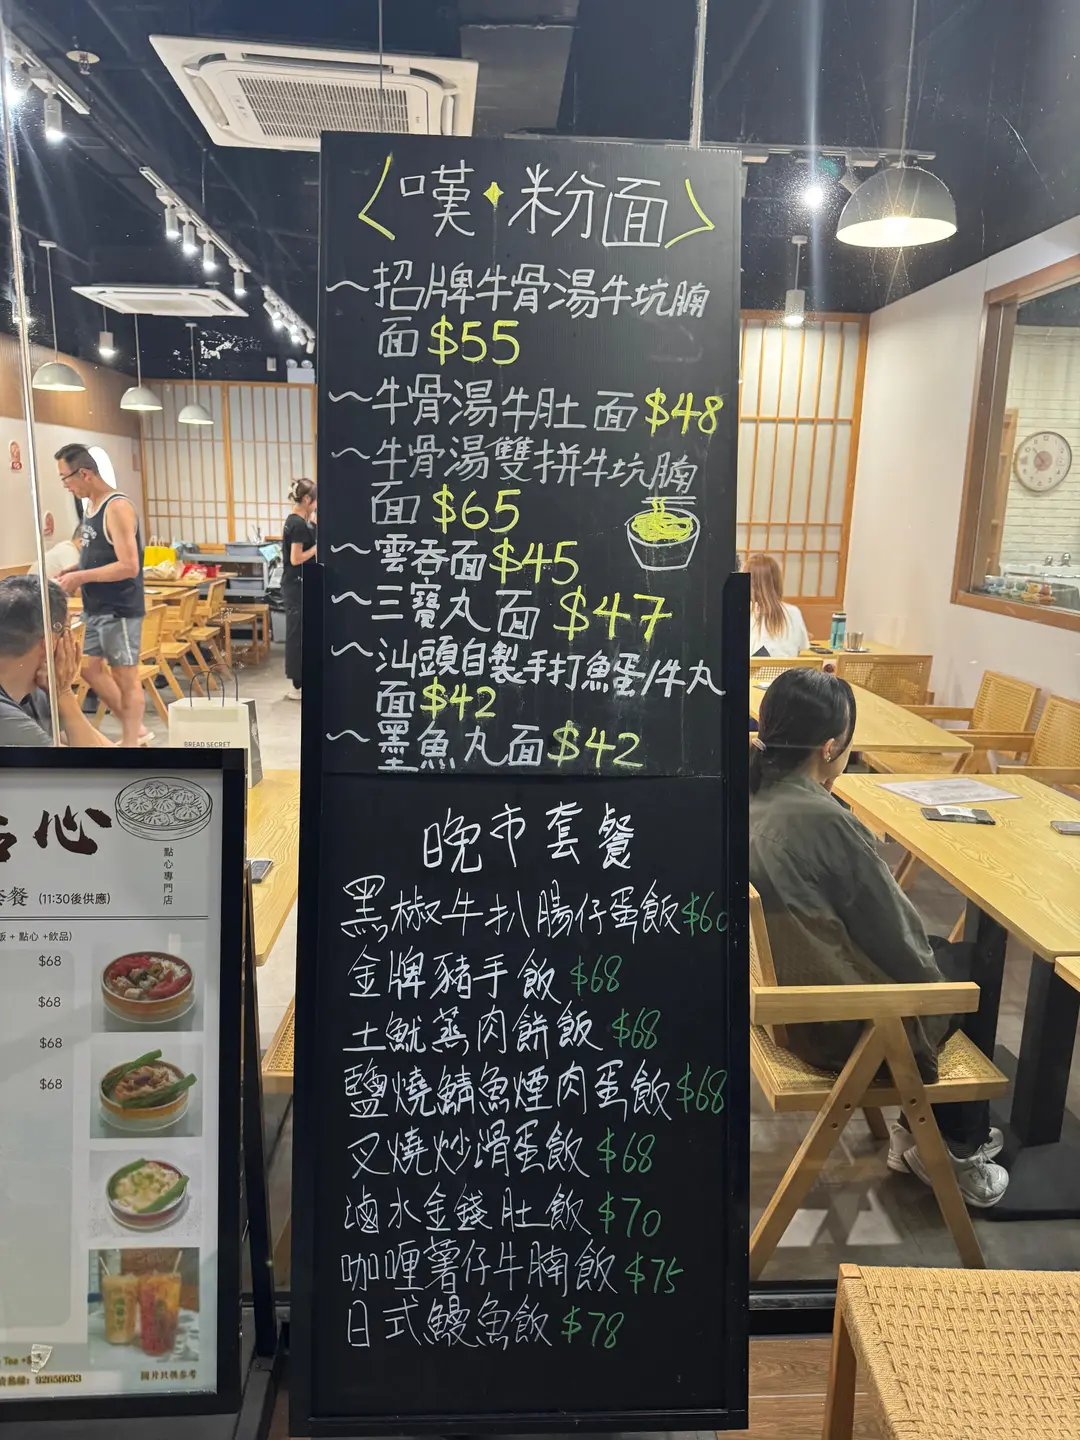 〈嘆✦粉面〉
～招牌牛骨湯牛坑腩
面 $55
～牛骨湯牛肚面 $48
～牛骨湯雙拼牛坑腩
面 $65
～雲吞面 $45
～三寶丸面 $47
～汕頭自製手打魚蛋/牛丸
面 $42
～墨魚丸面 $42
晚市套餐
黑椒牛扒腸仔蛋飯 $60
金牌豬手飯 $68
土魷蒸肉餅飯 $68
鹽燒鯖魚煙肉蛋飯 $68
叉燒炒滑蛋飯 $68
滷水金錢肚飯 $70
咖喱薯仔牛腩飯 $75
日式鰻魚飯 $78
心
點心專門店
餐 (11:30後供應)
飯 + 點心 +飲品)
$68
$68
$68
$68
Tea
92656033
圖片只供參考
BREAD SECRET